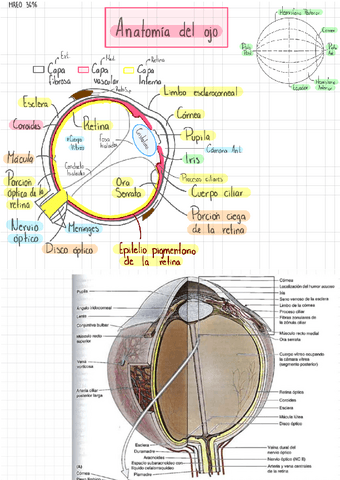 Anatomía del ojo
Hemisferio Posterior
Córnea
Ecuador
Capa
fibrosa
Capa
vascular
Capa
Interna
Limbo esclerocorneal
Esclera
Córnea
Coroides
Retina
Pupila
Cuerpo
Vítreo
Fosa
hialoidea
Cristalino
Cámara Ant.
Iris
Mácula
Conducto
hialoideo
Procesos ciliares
Ora
Serrata
Cuerpo ciliar
Porción
óptica de la
retina
Porción ciega
de la retina
Nervio
óptico
Meninges
Disco óptico
Epitelio pigmentario
de la retina
Pupila
Ángulo iridocorneal
Conjuntiva bulbar
Músculo recto
superior
Vena
vorticosa
Arteria ciliar
posterior larga
Esclera
Duramadre
Aracnoides
Espacio subaracnoideo con
líquido cefalorraquídeo
Piamadre
Córnea
Localización del humor acuoso
Iris
Seno venoso de la esclera
Limbo de la córnea
Proceso ciliar
Fibras zonulares de
la zónula ciliar
Músculo recto medial
Ora serrata
Cuerpo vítreo ocupando
la cámara vítrea
(segmento posterior)
Retina óptica
Coroides
Esclera
Mácula lútea
Disco óptico
Vaina dural del
nervio óptico
Nervio óptico (NC II)
Arteria y vena centrales
de la retina
Córnea